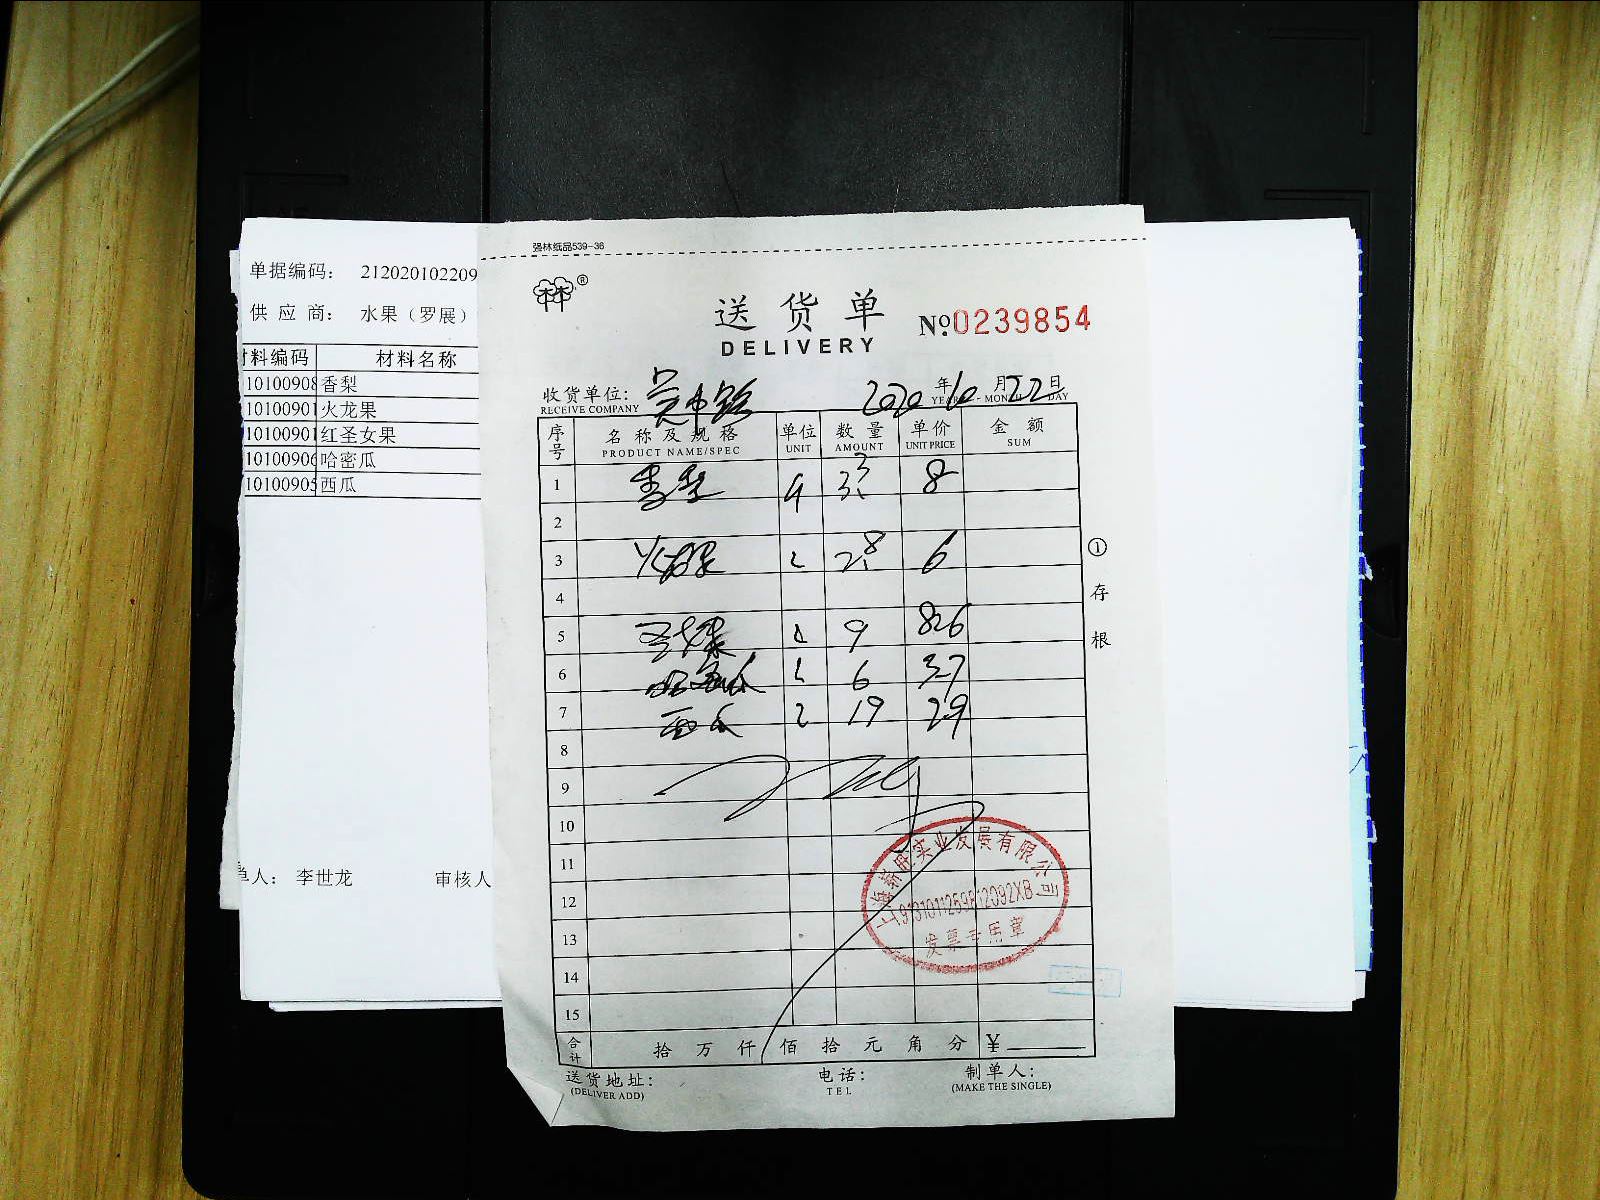 单据编码: 212020102209
供 应 商: 水果（罗展）
材料编码 材料名称
10100908 香梨
1010090 火龙果
1010090 红圣女果
1010090 哈密瓜
10100905 西瓜
单人: 李世龙 审核人
强林纸品539-36
林®
送货单
DELIVERY
№0239854
收货单位: 吴中路 2020 年 10 月 22 日
RECEIVE COMPANY YEAR MONTH DAY
序号 名称及规格 单位 数量 单价 金额
PRODUCT NAME/SPEC UNIT AMOUNT UNIT PRICE SUM
1 香梨 3.3 8
2
3 火龙果 2.8 6
4
5 圣女果 9 826
6 哈密瓜 6 37
7 西瓜 19 29
8
9
10
11
12
13
14
15
合计 拾 万 仟 佰 拾 元 角 分 ¥
① 存根
实业发展有限公司
发票专用章
送货地址: 电话: 制单人:
(DELIVER ADD) TEL (MAKE THE SINGLE)